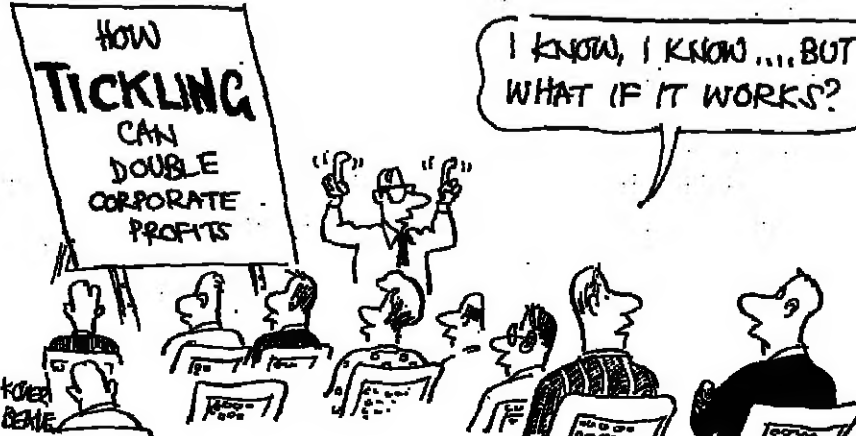 HOW
TICKLING
CAN
DOUBLE
CORPORATE
PROFITS
I KNOW, I KNOW .... BUT
WHAT IF IT WORKS?
BEALE